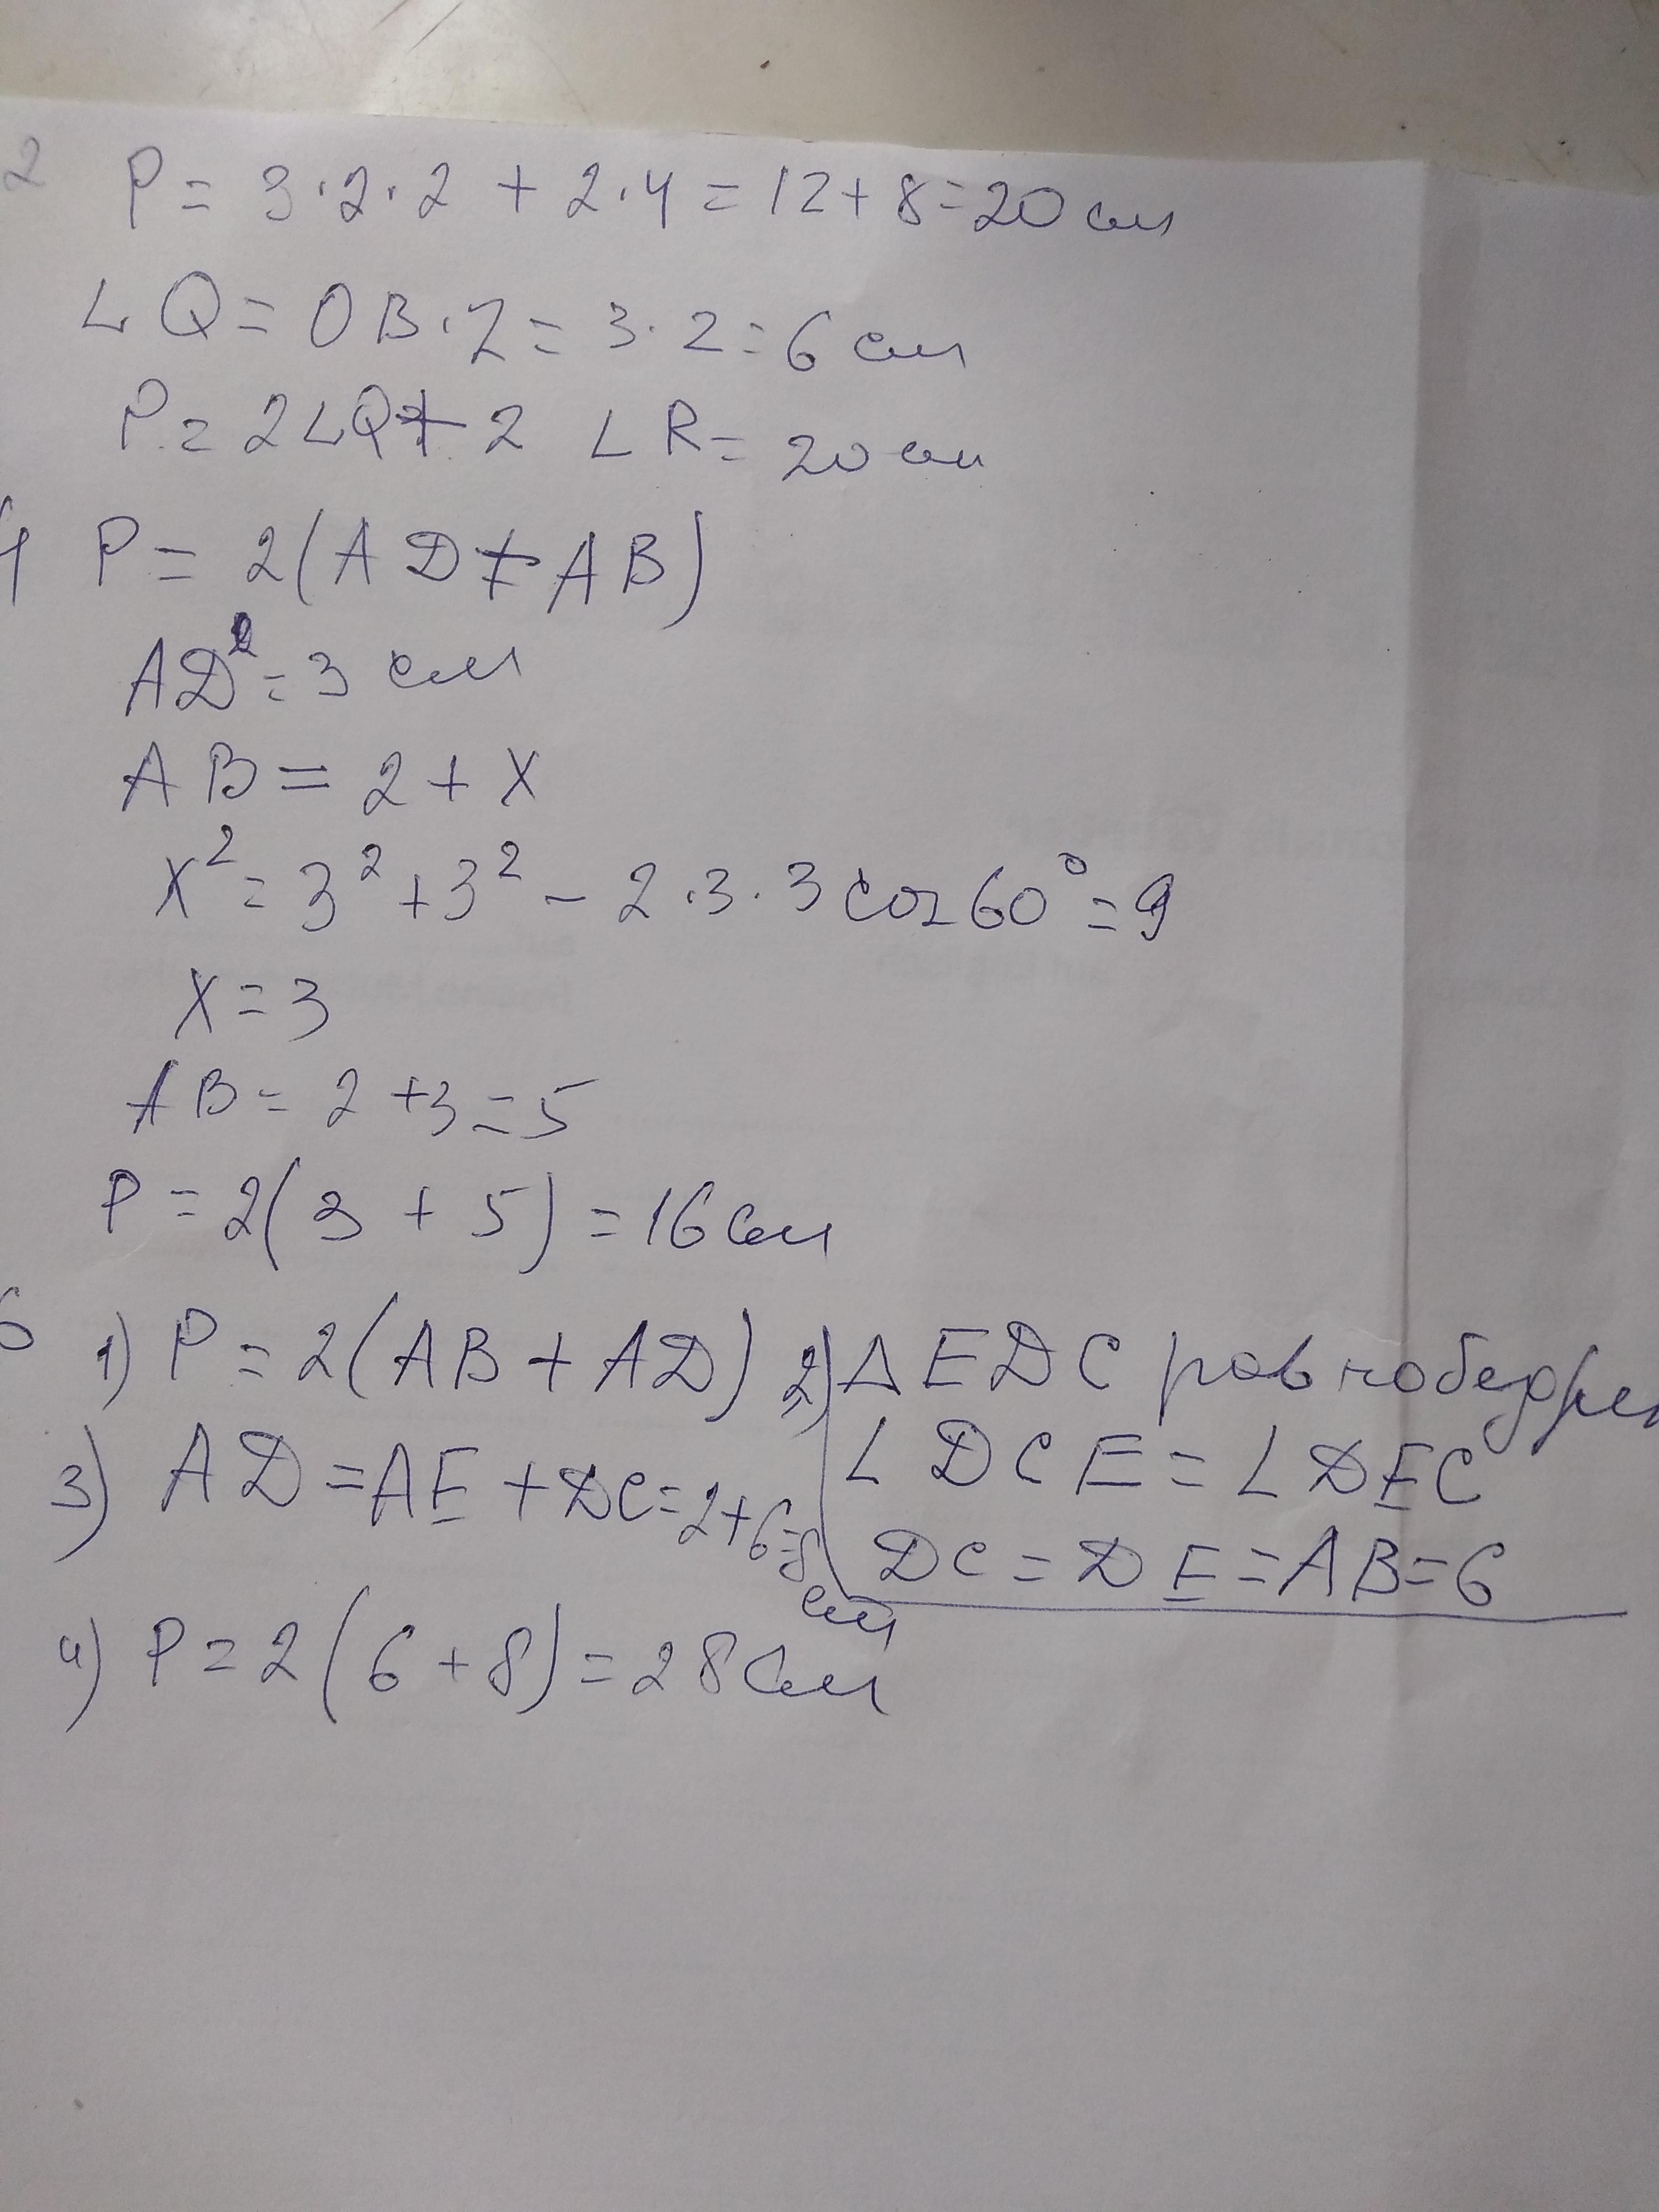 2 P = 3·2·2 + 2·4 = 12 + 8 = 20 см
LQ = OB·2 = 3·2 = 6 см
P = 2LQ + 2 LR = 20 см
4 P = 2(AD + AB)
AD = 3 см
AB = 2 + x
x² = 3² + 3² - 2·3·3 cos60° = 9
x = 3
AB = 2 + 3 = 5
P = 2(3 + 5) = 16 см
6 1) P = 2(AB + AD) 2) Δ EDC равнобедрен
∠ DCE = ∠ DEC
DC = DE = AB = 6
3) AD = AE + DC = 2 + 6 = 8 см
4) P = 2(6 + 8) = 28 см